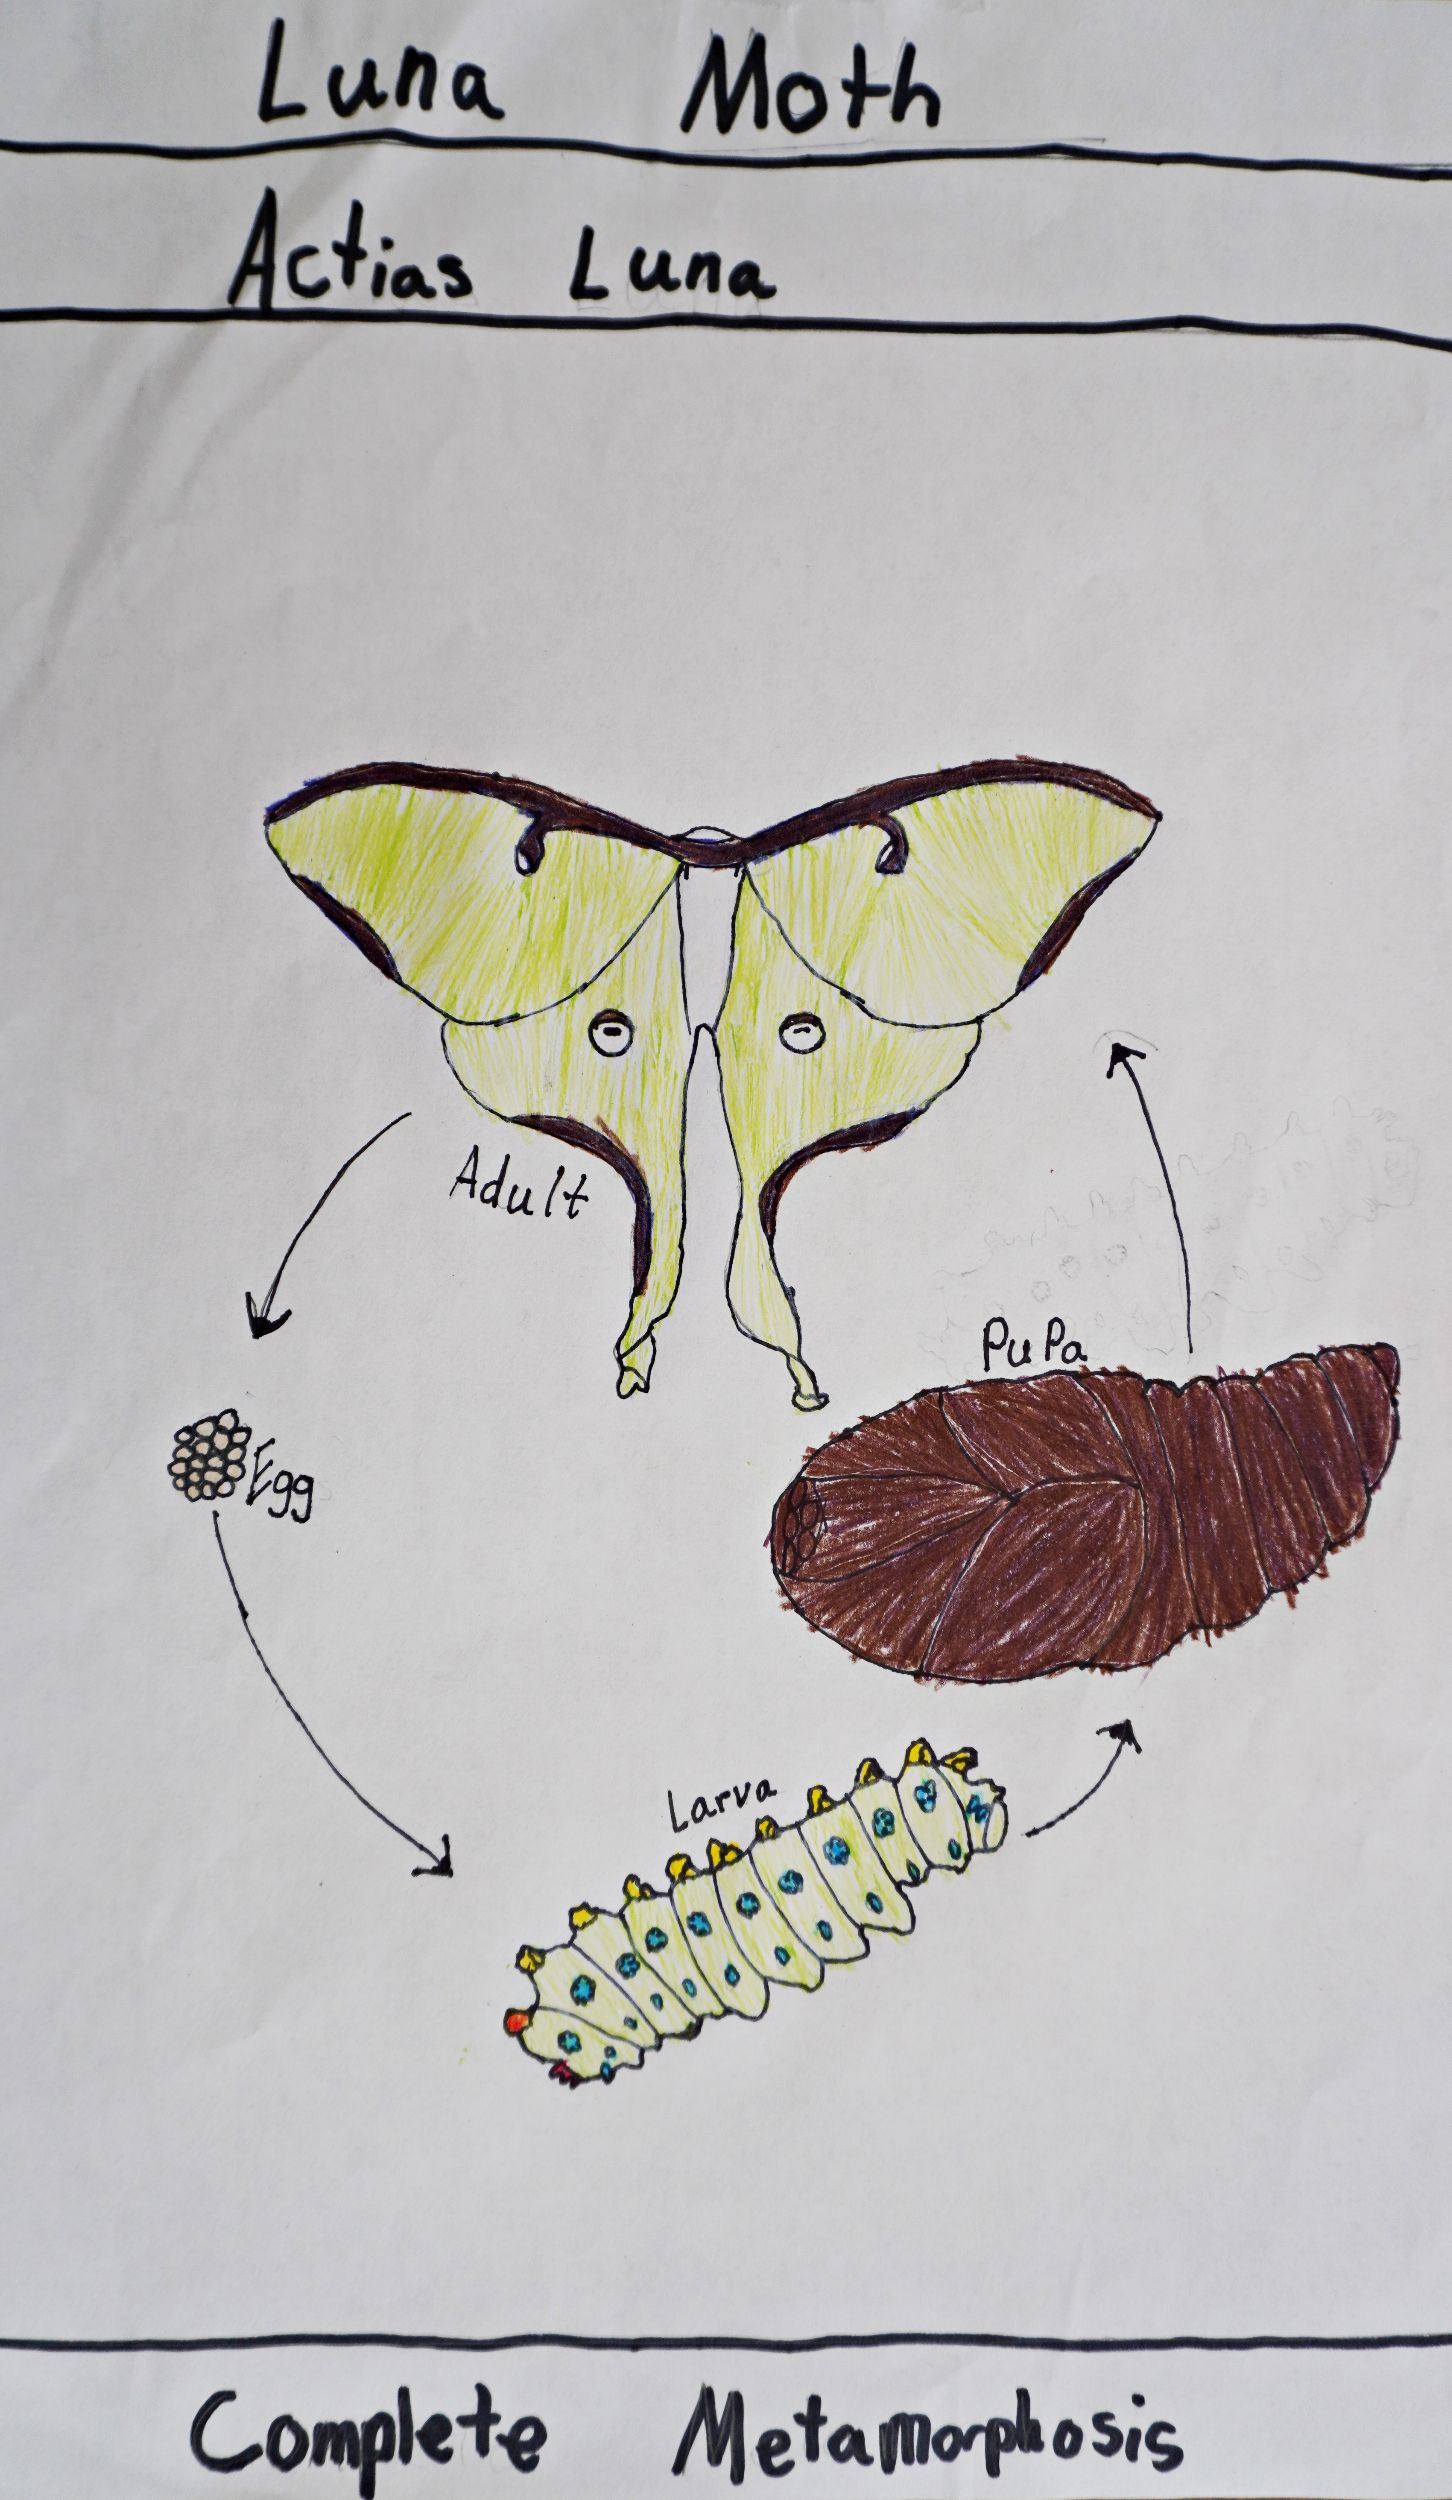 Luna Moth
Actias Luna
Adult
PuPa
Egg
Larva
Complete Metamorphosis